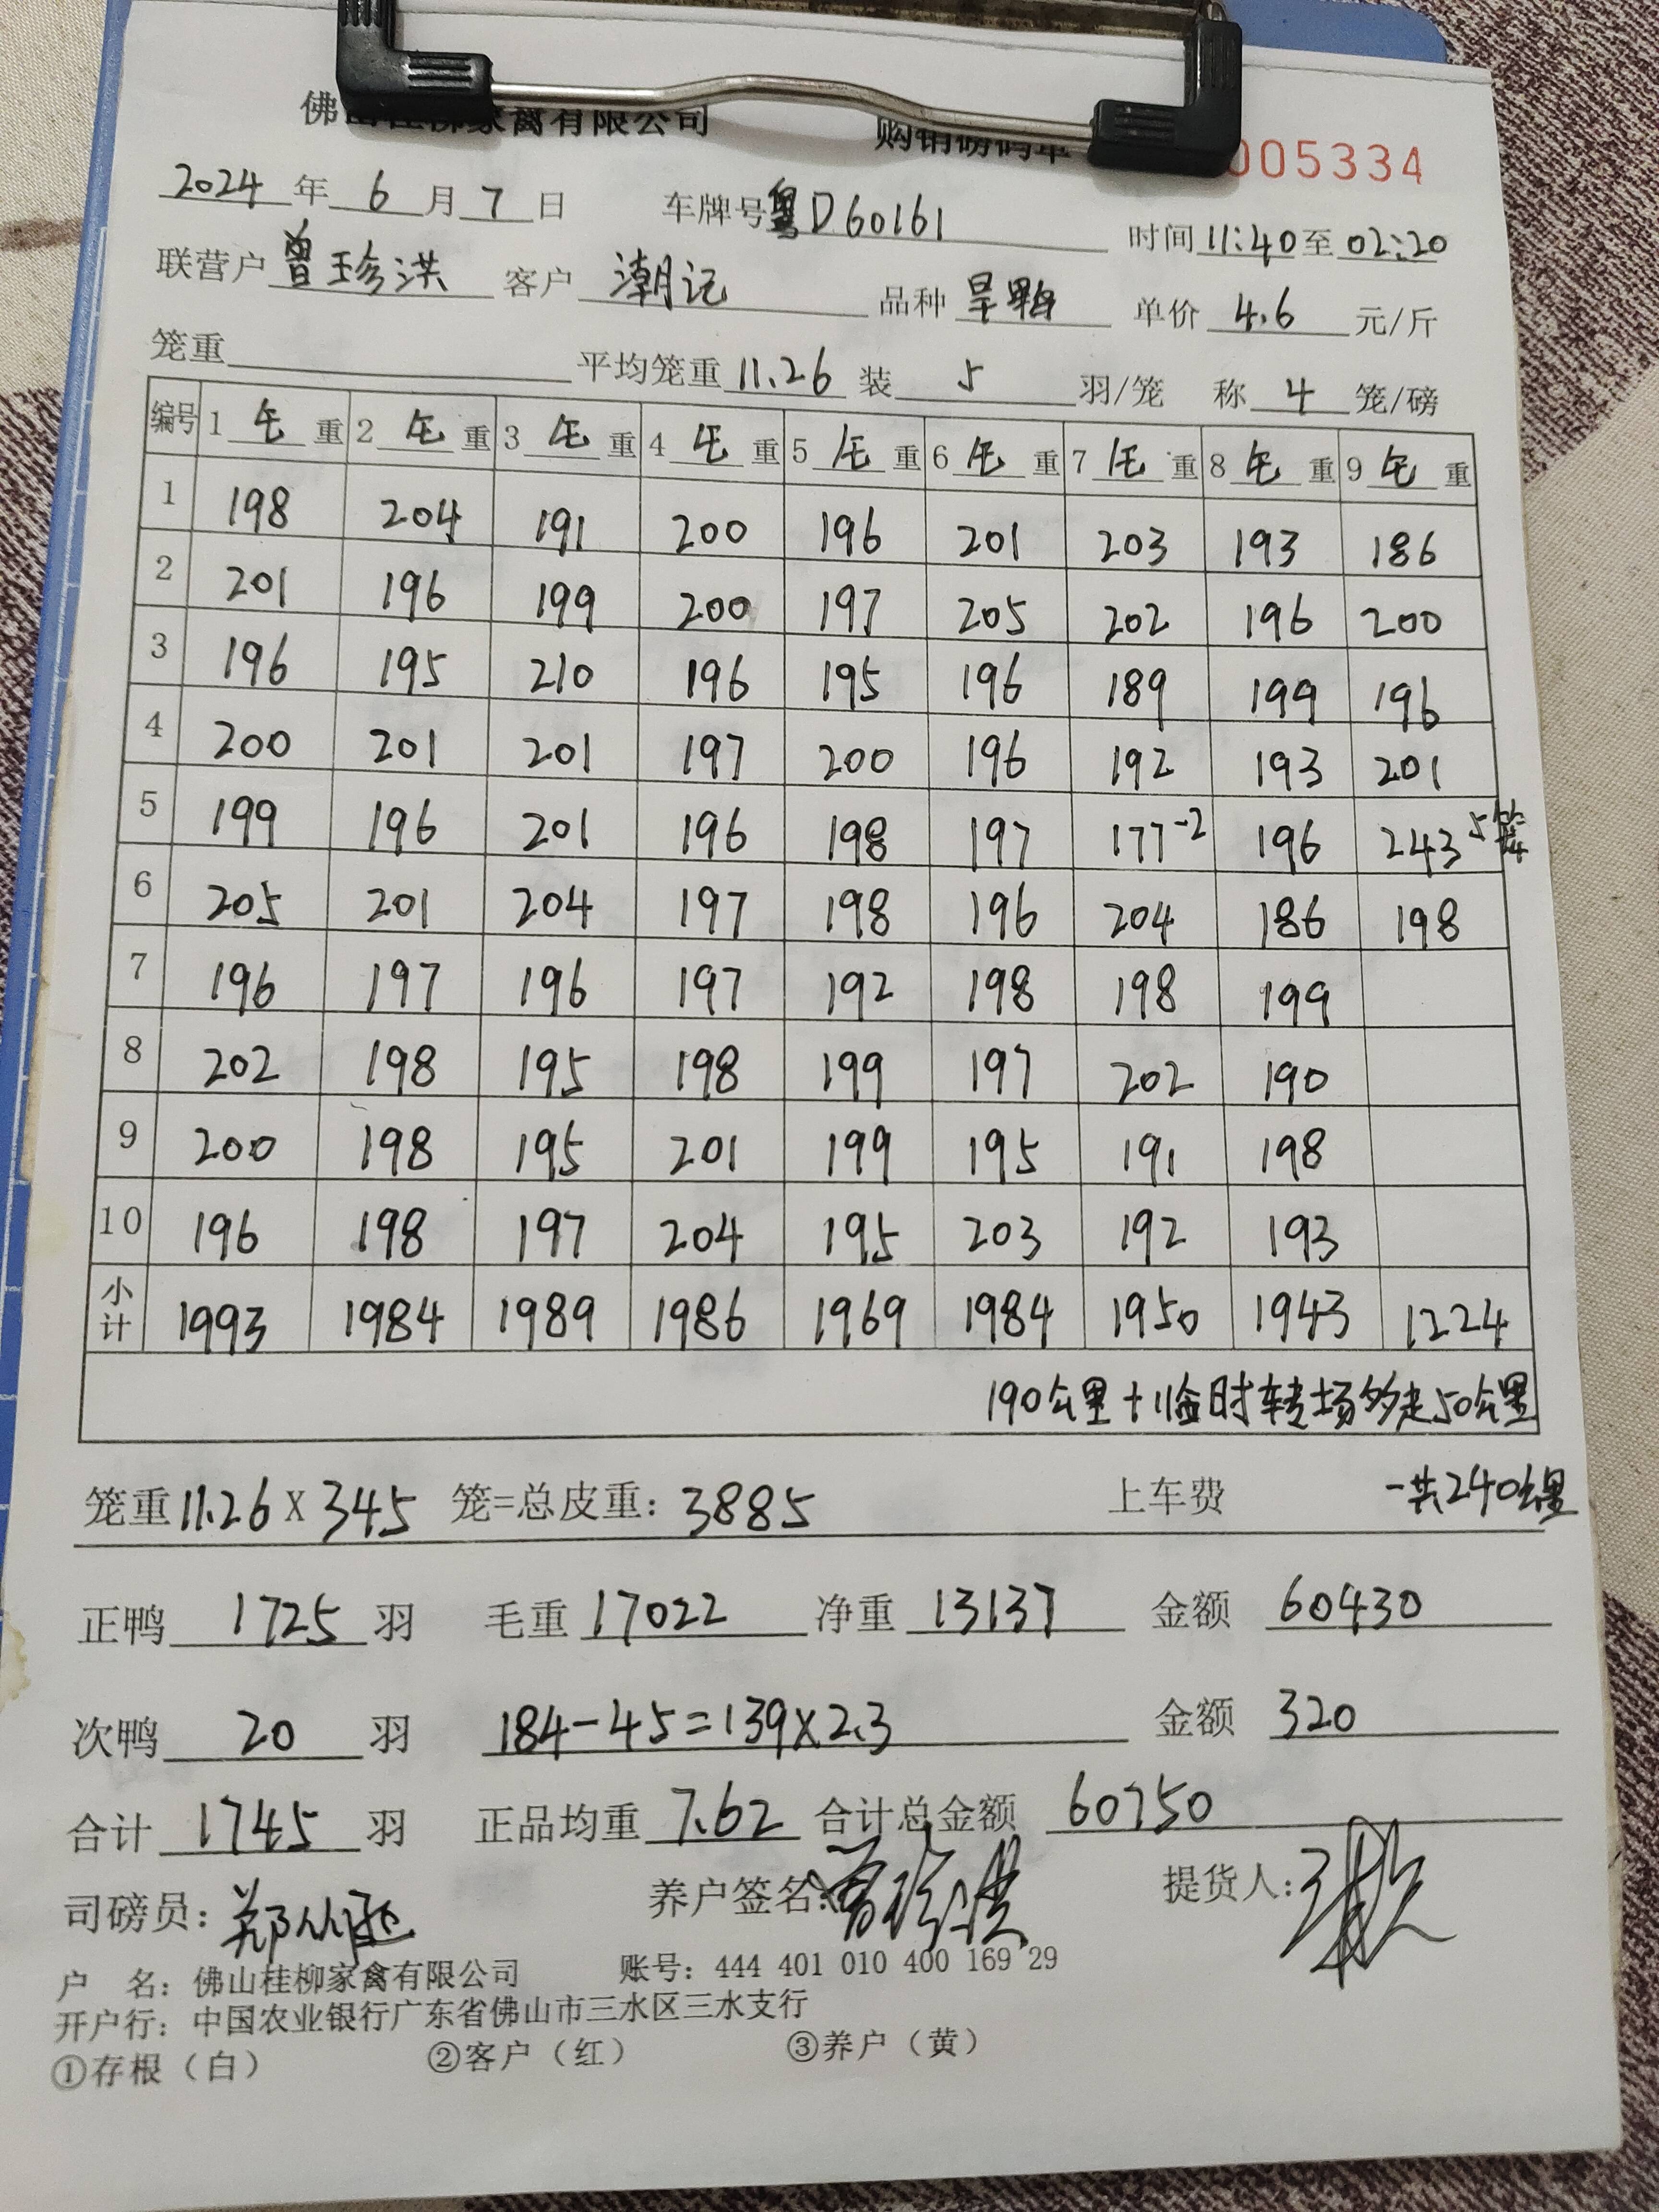 佛山桂柳家禽有限公司 购销磅码单 005334
2024年6月7日 车牌号粤D60161 时间11:40至02:20
联营户曾珍洪 客户潮记 品种旱鸭 单价4.6元/斤
笼重 平均笼重11.26装5羽/笼 称4笼/磅
编号 1毛重 2毛重 3毛重 4毛重 5毛重 6毛重 7毛重 8毛重 9毛重
1 198 204 191 200 196 201 203 193 186
2 201 196 199 200 197 205 202 196 200
3 196 195 210 196 195 196 189 199 196
4 200 201 201 197 200 196 192 193 201
5 199 196 201 196 198 197 177-2 196 243 5笼
6 205 201 204 197 198 196 204 186 198
7 196 197 196 197 192 198 198 199
8 202 198 195 198 199 197 202 190
9 200 198 195 201 199 195 191 198
10 196 198 197 204 195 203 192 193
小计 1993 1984 1989 1986 1969 1984 1950 1943 1224
190公里+临时转场多走50公里
笼重11.26X345笼=总皮重:3885 上车费 一共240公里
正鸭1725羽 毛重17022 净重13137 金额60430
次鸭20羽 184-45=139X2.3 金额320
合计1745羽 正品均重7.62 合计总金额60750
司磅员: 养户签名:曾珍洪 提货人:
户 名:佛山桂柳家禽有限公司 账号:444 401 010 400 169 29
开户行:中国农业银行广东省佛山市三水区三水支行
①存根(白) ②客户(红) ③养户(黄)